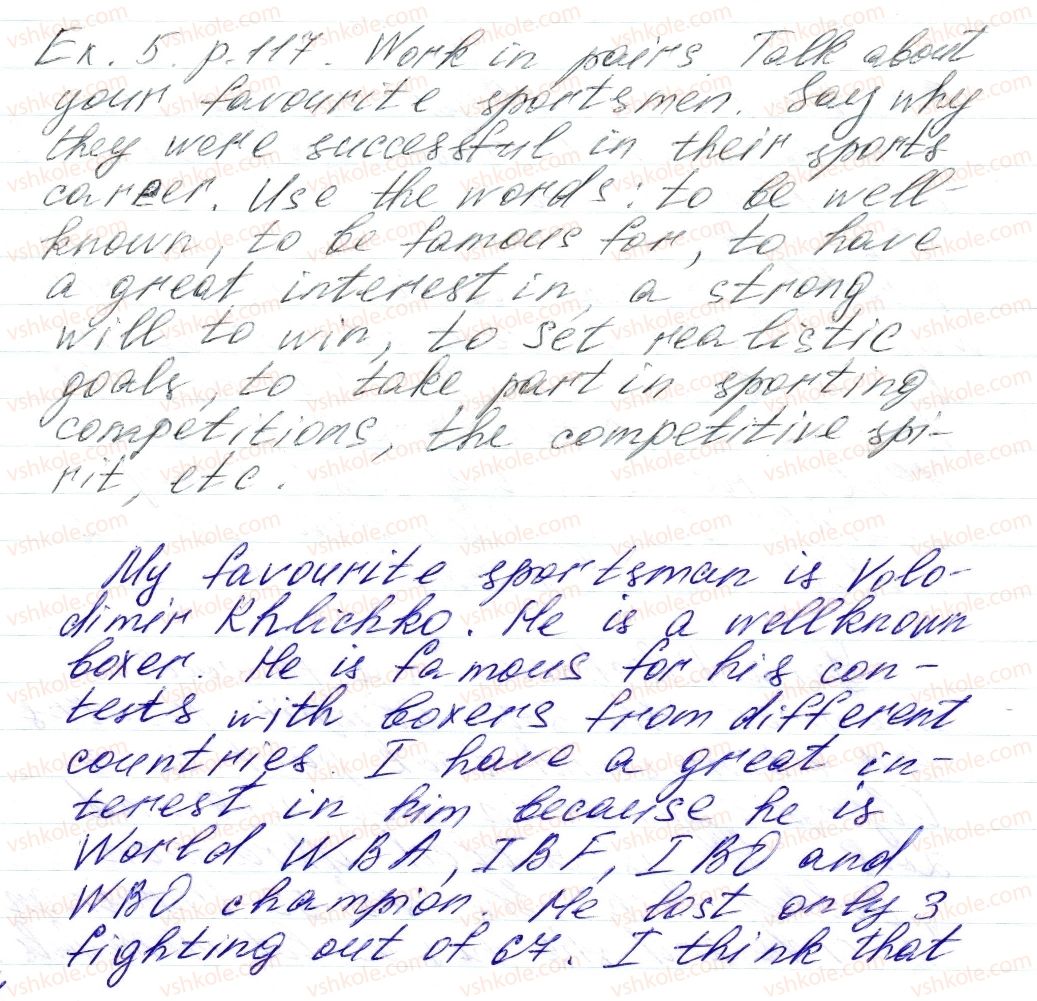 Ex. 5. p. 117. Work in pairs. Talk about
your favourite sportsmen. Say why
they were successful in their sports
career. Use the words: to be well-
known, to be famous for, to have
a great interest in, a strong
will to win, to set realistic
goals, to take part in sporting
competitions, the competitive spi-
rit, etc.
My favourite sportsman is Volo-
dimir Khlichko. He is a wellknown
boxer. He is famous for his con-
tests with boxers from different
countries. I have a great in-
terest in him because he is
World WBA, IBF, IBO and
WBO champion. He lost only 3
fighting out of 67. I think that